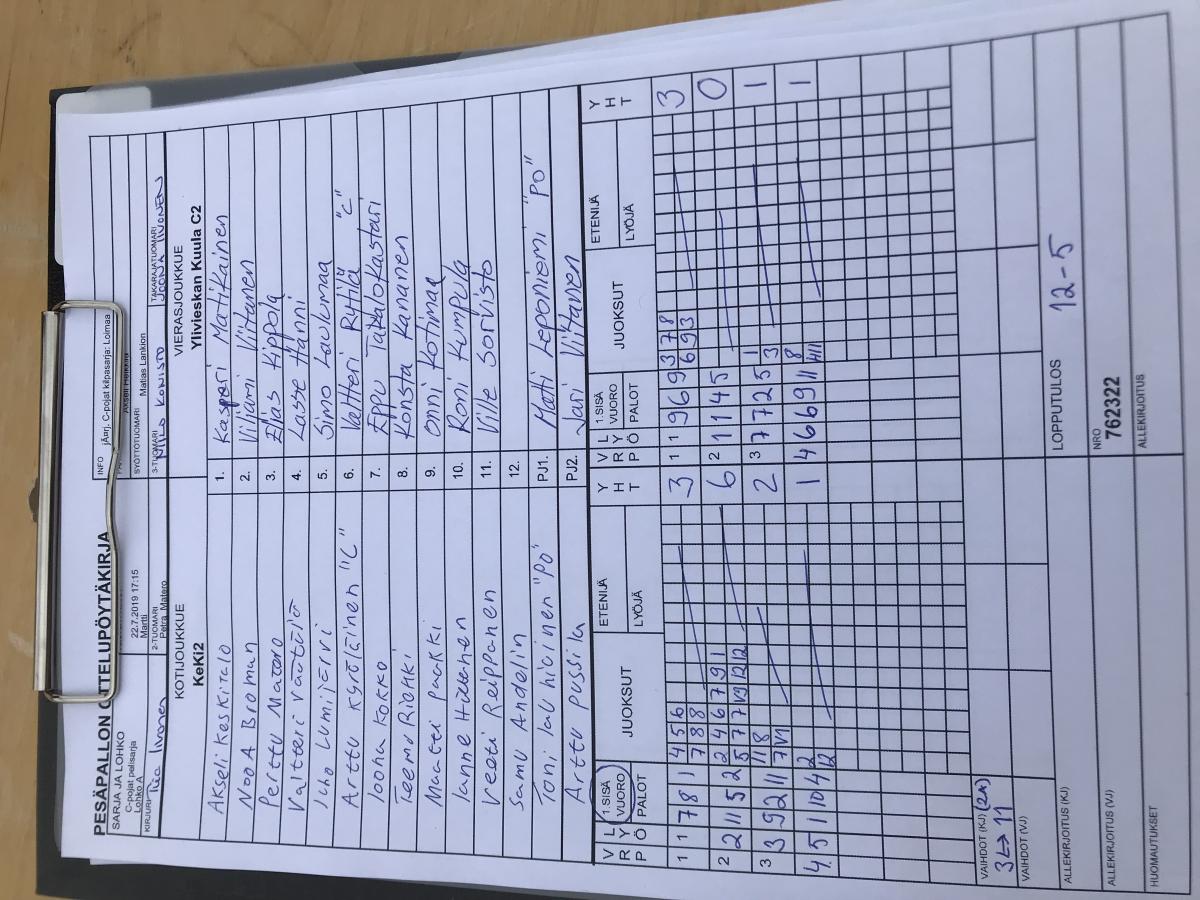 PESÄPALLON OTTELUPÖYTÄKIRJA
SARJA JA LOHKO
C-pojat pelisarja
Lohko A
22.7.2019 17:15
Martti
INFO jÄurj. C-pojat kilpasarja: Loimaa
SYÖTTÖTUOMARI
Matias Lankion
KIRJURI
2-TUOMARI
Petra Matero
3-TUOMARI
TAKARAJATUOMARI
KOTIJOUKKUE
KeKi2
VIERASJOUKKUE
Ylivieskan Kuula C2
Akseli Keskitalo 1. Kasperi Matikainen
Nooa Broman 2. Viljami Viitanen
Perttu Matero 3. Elias Kippola
Valtteri Väätäiö 4. Lasse Hänni
Juho Lumijärvi 5. Simo Lauluma
Arttu Kyröläinen "C" 6. Valtteri Ryhtilä "C"
Jooha Kokko 7. Eppu Takalokastari
Teemu Riekki 8. Konsta Kananen
Maatti Pakki 9. Onni Kotimaa
Janne Hiltunen 10. Roni Kumpula
Veeti Reipponen 11. Ville Sorvisto
Samu Andelin 12.
Toni Lauhiainen "PO" PJ1. Matti Leponiemi "PO"
Arttu Pussila PJ2. Jari Viitanen
VRÖ LYÖ 1.SISÄ VUORO PALOT JUOKSUT ETENIJÄ LYÖJÄ YHT
1 1 7 8 1 4 5 6 3
7 8 8
2 2 11 5 2 2 4 6 7 9 1 6
5 7 7 VY 12 12
3 3 9 2 11 11 8 2
7 VY
4. 5 1 10 4 2 2 1
12
1 1 9 6 9 3 7 8 3
6 9 3
2 1 1 4 5 0
3 7 7 2 5 1 1
3
4 6 6 9 11 8 1
VAIHDOT (KJ) (2A)
3 ↔ 11
VAIHDOT (VJ)
LOPPUTULOS
12-5
ALLEKIRJOITUS (KJ)
NRO
762322
ALLEKIRJOITUS (VJ)
ALLEKIRJOITUS
HUOMAUTUKSET